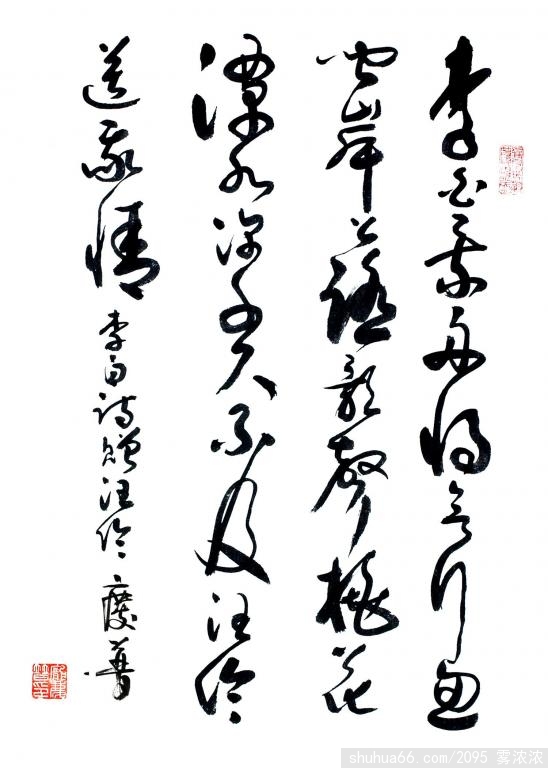 李白乘舟将欲行忽
闻岸上踏歌聲桃花
潭水深千尺不及汪伦
送我情
李白诗赠汪伦 慶華
shuhua66.com/2095 雾浓浓